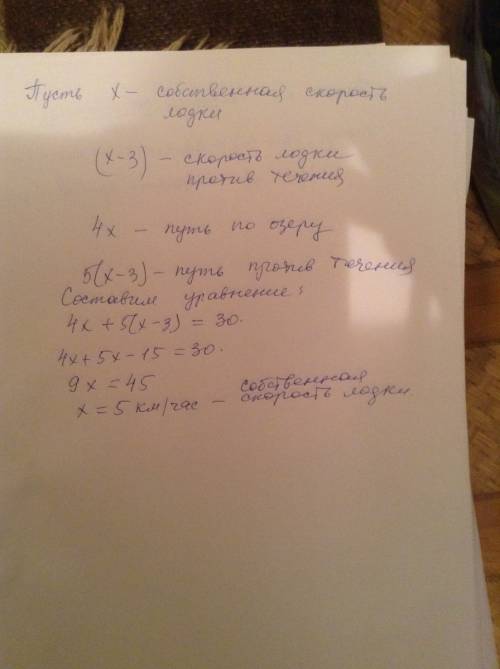 Пусть x — собственная скорость
лодки
(x-3) — скорость лодки
против течения
4x — путь по озеру
5(x-3) — путь против течения
Составим уравнение:
4x + 5(x-3) = 30.
4x+5x-15 = 30.
9x = 45
x = 5 км/час — собственная
скорость лодки